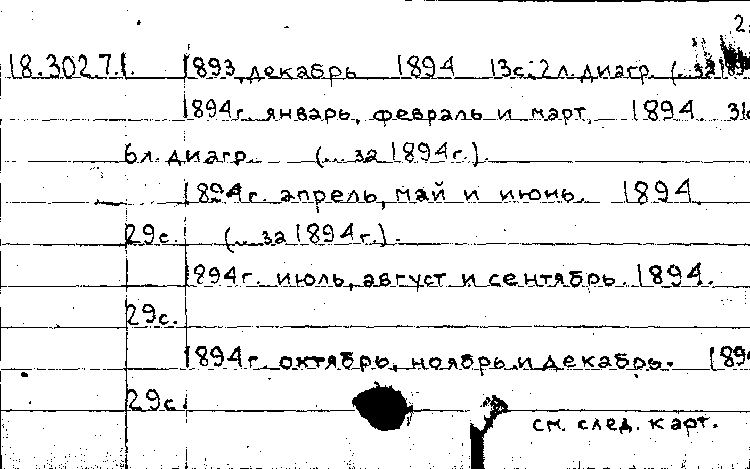 2.
18.302.7.1. 1893, декабрь 1894 13с., 2 л. диагр. (... за 189
1894г. январь, февраль и март. 1894. 31с
6л. диагр. (... за 1894г.).
1894г. апрель, май и июнь. 1894.
29с. (... за 1894г.).
1894г. июль, август и сентябрь. 1894.
29с.
1894г. октябрь, ноябрь и декабрь. 189
29с.
см. след. карт.